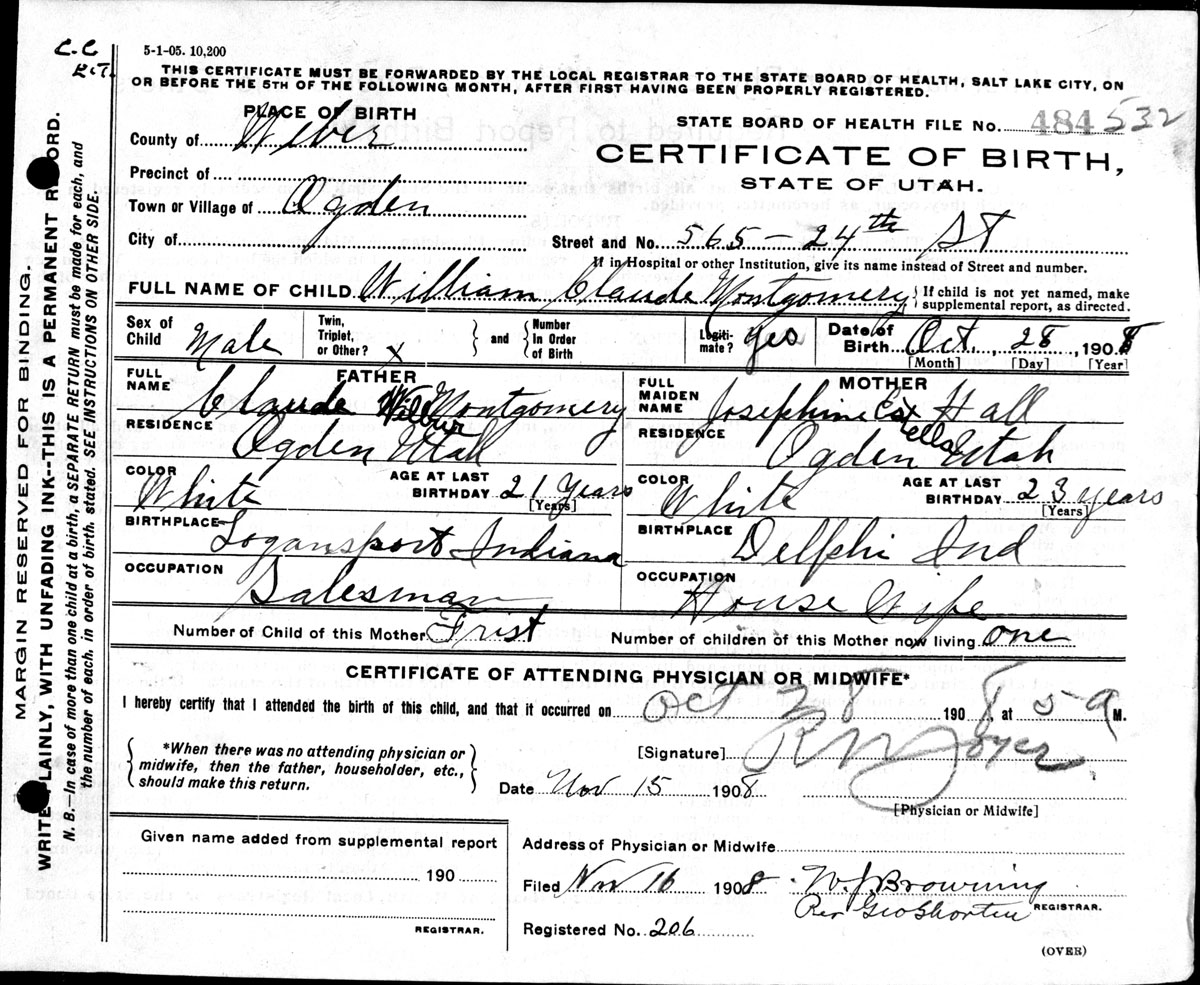 C.C
R.T.
5-1-05. 10,200
THIS CERTIFICATE MUST BE FORWARDED BY THE LOCAL REGISTRAR TO THE STATE BOARD OF HEALTH, SALT LAKE CITY, ON
OR BEFORE THE 5TH OF THE FOLLOWING MONTH, AFTER FIRST HAVING BEEN PROPERLY REGISTERED.
PLACE OF BIRTH
STATE BOARD OF HEALTH FILE No. 484 532
County of Weber
CERTIFICATE OF BIRTH,
STATE OF UTAH.
Precinct of
Town or Village of Ogden
City of
Street and No. 565-24th St
If in Hospital or other Institution, give its name instead of Street and number.
FULL NAME OF CHILD William Claude Montgomery { If child is not yet named, make
supplemental report, as directed.
Sex of Child Male Twin, Triplet, or Other? X } and { Number In Order of Birth Legiti-mate? yes Date of Birth Oct, 28, 1908
[Month] [Day] [Year]
FATHER
FULL NAME Claude Wilbur Montgomery
RESIDENCE Ogden Utah
COLOR White AGE AT LAST BIRTHDAY 21 Years
[Years]
BIRTHPLACE Logansport Indiana
OCCUPATION Salesman
MOTHER
FULL MAIDEN NAME Josephine Hall
RESIDENCE Ogden Utah
COLOR White AGE AT LAST BIRTHDAY 23 years
[Years]
BIRTHPLACE Delphi Ind
OCCUPATION House Wife
Number of Child of this Mother Frist Number of children of this Mother now living one
CERTIFICATE OF ATTENDING PHYSICIAN OR MIDWIFE*
I hereby certify that I attended the birth of this child, and that it occurred on Oct 28 1908, at 5 A M.
{ *When there was no attending physician or
midwife, then the father, householder, etc.,
should make this return. }
[Signature]
Date Nov 15 1908
[Physician or Midwife]
Given name added from supplemental report
190
REGISTRAR.
Address of Physician or Midwife
Filed Nov 16 1908 W. J. Browning
REGISTRAR.
Registered No. 206
(OVER)
MARGIN RESERVED FOR BINDING.
WRITE PLAINLY, WITH UNFADING INK--THIS IS A PERMANENT RECORD.
N. B.—In case of more than one child at a birth, a SEPARATE RETURN must be made for each, and
the number of each, in order of birth, stated. SEE INSTRUCTIONS ON OTHER SIDE.